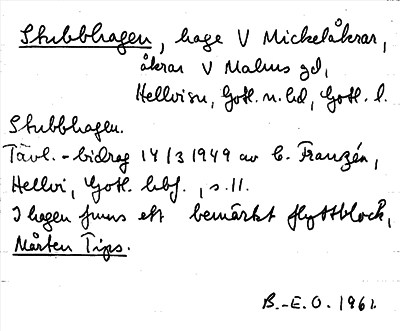 Stubbhagen, hage V Mickelåkrar,
åkrar V Malms gd,
Hellvi sn, Gotl. n. hd, Gotl. l.
Stubbhagen.
Tävl.-bidrag 14/3 1949 av C. Franzén,
Hellvi, Gotl. hbf., s. 11.
I hagen finns ett bemärkt flyttblock,
Mårten Tips.
B.-E.O. 1961.